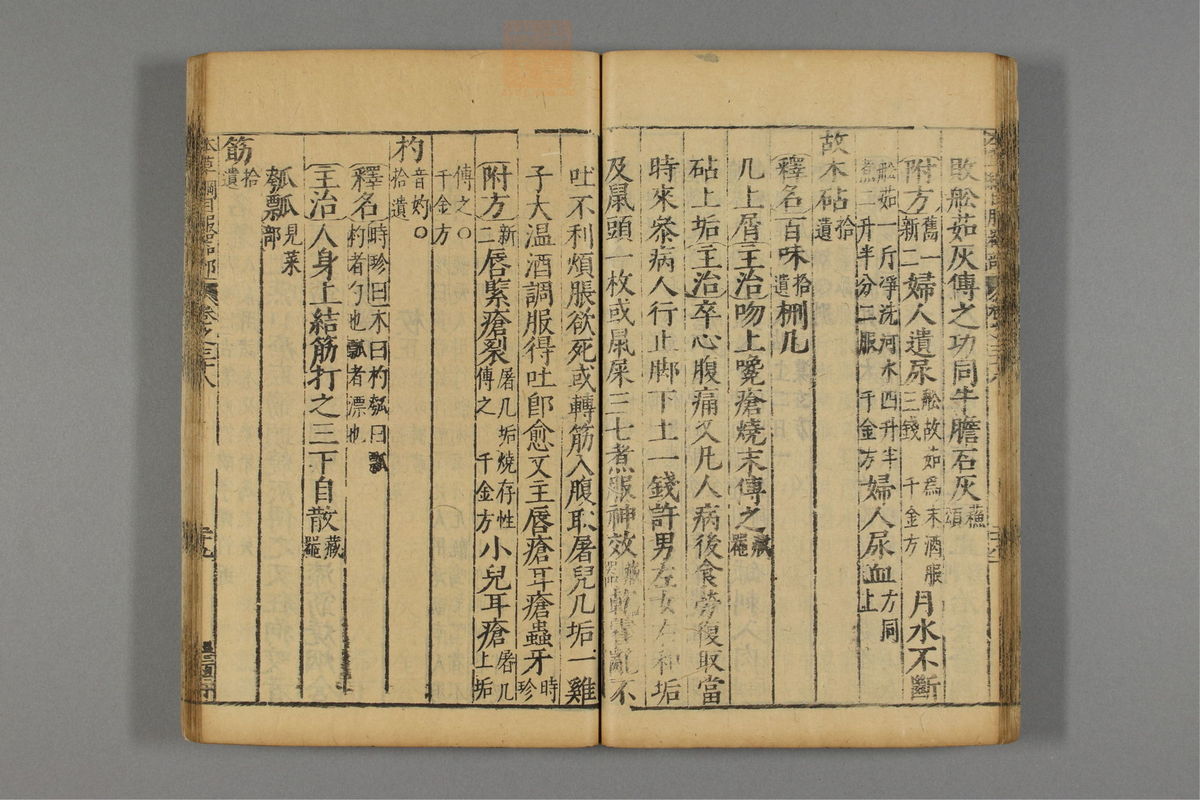 敗舩茹灰傅之功同牛膽石灰蘇頌
附方舊一新二婦人遺尿舩故茹爲末酒服三錢千金方月水不斷
舩茹一斤淨洗河水四升半煮二升半分二服千金方婦人尿血方同上
故木砧拾遺
釋名百味拾遺枬几
几上屑主治吻上㗜瘡燒末傅之藏器
砧上垢主治卒心腹痛又凡人病後食勞復取當
時來叅病人行止脚下土一錢許男左女右和垢
及鼠頭一枚或鼠屎三七煮服神效藏器乾霍亂不
吐不利煩脹欲死或轉筋入腹取屠兒几垢一雞
子大温酒調服得吐卽愈又主唇瘡耳瘡蟲牙時珍
附方新二唇緊瘡裂屠几垢燒存性傅之千金方小兒耳瘡屠几上垢
傅之○千金方
杓音妁○拾遺
釋名時珍曰木曰杓瓠曰瓢杓者勺也瓢者漂也
主治人身上結筋打之三下自散藏器
瓠瓢見菜部
筯拾遺
本草綱目服器部 卷之三十八